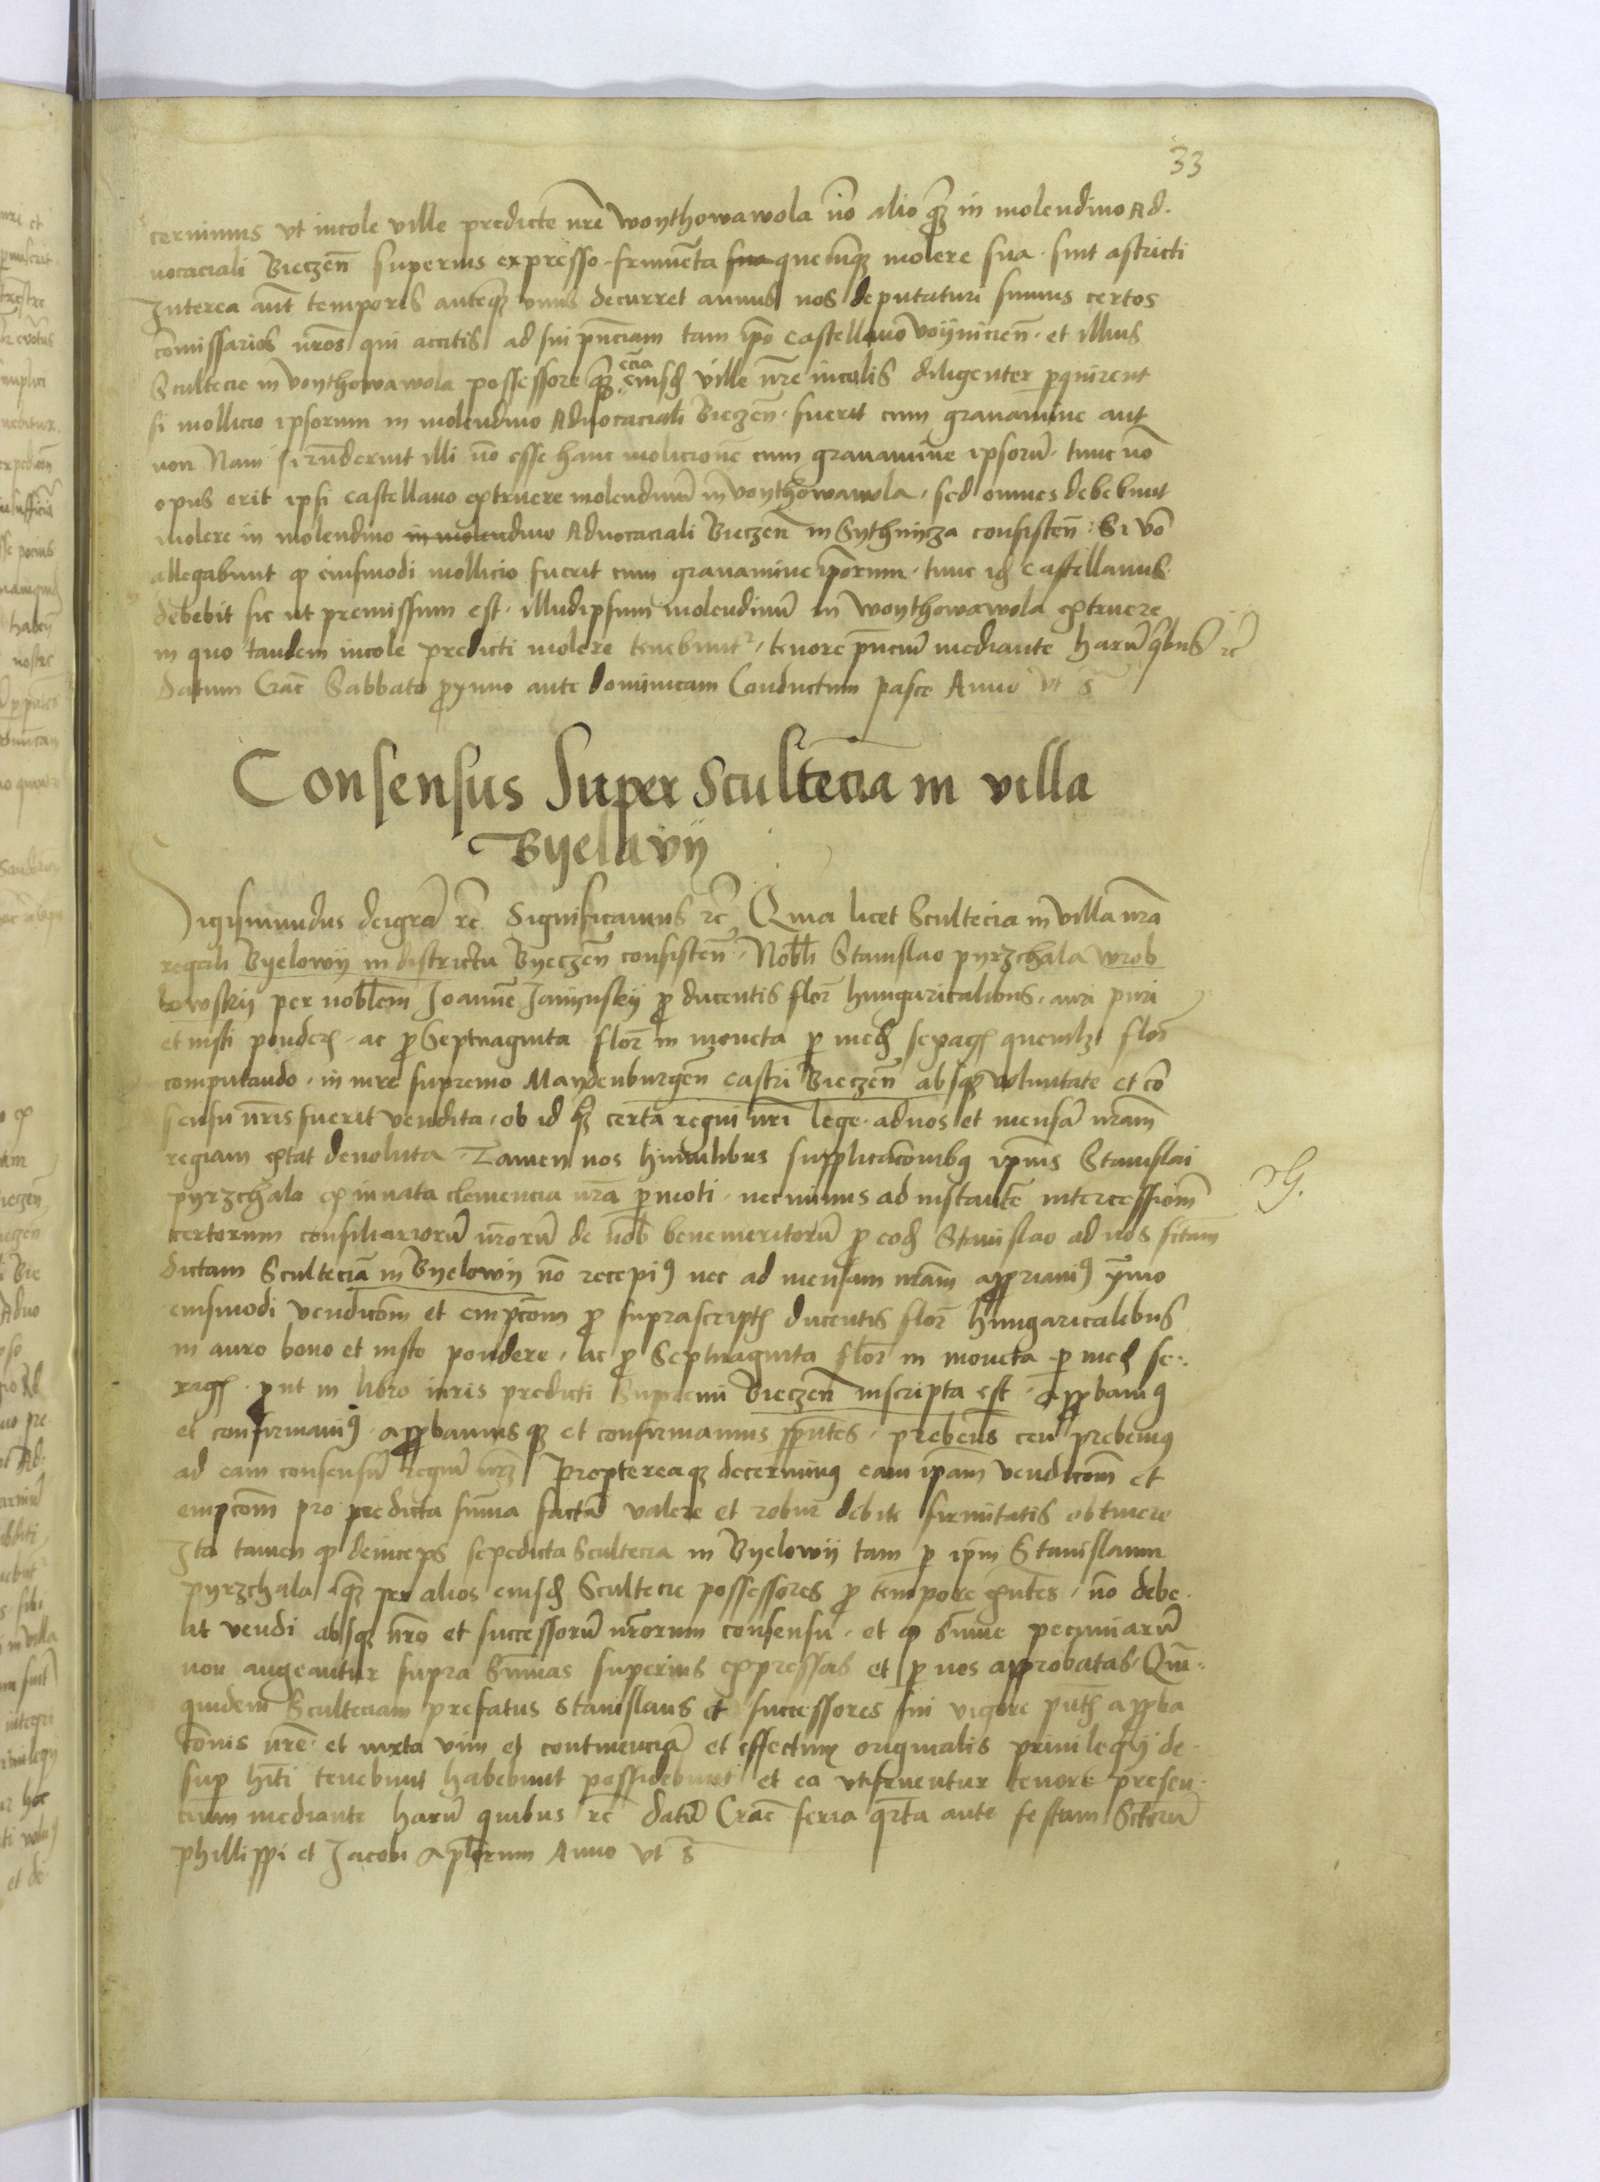 33
cernimus vt incole ville predicte nr̃e Wonthowawola nõ alio q̃ȝ in molendino Ad-
uocaciali Bieczen̄ superius expresso frumẽta sua quecũqȝ molere sua sint astricti
Interea aũt temporis anteq̃ȝ vnus decurret annus nos deputaturi sumus certos
cõmissarios nr̃os qui accitis ad sui pñciam tam ip̃o Castellano Voijnicien̄ et illius
Scultecie in Vonthowawola possessore q̃ȝ ecia eiusdȝ ville nr̃e incolis diligenter perquirent
si mollicio ipsorum in molendino Aduocaciali Bieczen̄ fuerit cum grauamine aut
non Nam si rñderint illi nõ esse hanc molicionẽ cum grauamine ipsorũ tunc nõ
opus erit ipsi castellano extruere molendinũ in Vonthowawola sed omnes debebunt
molere in molendino in molendino Aduocaciali Bieczen̄ in Sythnicza consisten̄ Si võ
allegabunt ꝙ eiusmodi mollicio fuerit cum grauamine ip̃orum tunc idȝ Castellanus
debebit sic ut premissum est illudipsum molendinũ in Wonthowawola extruere
in quo tandem incole predicti molere tenebunt᷑ tenore pñciũ mediante harũ qbus rc̃
Datum Crac̃ Sabbato proximo ante dominicam Conductum pasce Anno vt s̃
Consensus Super Sculteciã in villa
Byelavij
Sigismundus deigrã rc̃ Significamus rc̃ Quia licet Scultecia in villa nr̃a
regali Byelowij in districtu Byeczen̄ consisten̄ Nobili Stanislao pyrzchala wrob
lowskij per nobilem Joannẽ Jaminskij pro ducentis flor̃ hungaricalibus auri puri
et iusti ponderȝ ac pro Septuaginta flor̃ in moneta per medȝ sexagȝ quemlȝt flor̃
computando in iure supremo Maydenburgen̄ castri Bieczen̄ absqȝ voluntate et cõ
sensu nr̃is fuerit vendita ob id qȝ certa regni nr̃i lege ad nos et mensã nr̃am
regiam extat deuoluta Tamen nos humilibus supplicacõnibqȝ ip̃ius Stanislai
pyrzchala ex innata clemencia nr̃a permoti necminus ad instantẽ intercessiõm
certorum consiliariorũ nr̃orũ de nob̃ benemeritorũ pro eodȝ Stanislao ad nos fctam
dictam Sculteciã in Byelowij nõ recepimꝰ nec ad mensam nr̃am appriauimꝰ ymo
eiusmodi vendicõm et empcõm pro suprascriptȝ ducentis flor̃ hungaricalibus
in auro bono et iusto pondere ac pro Septuaginta flor̃ in moneta per medȝ se-
xagȝ prout in libro iuris predicti Supremi Bieczen̄ inscripta est approbauimꝰ
et confirmauimꝰ approbamusqȝ et confirmamus pñtes prebens ceu prebemus
ad eam consensũ regiũ nr̃ȝ Proptereaqȝ decernimꝰ eam ip̃am vendicõm et
empcõm pro predicta sũma factã valere et robur debite firmitatis obtinere
Ita tamen ꝙ deinceps sepedicta Scultecia in Byelowij tam per ip̃m Stanislaum
pyrzchala q̃ȝ per alios eiusdȝ Scultecie possessores pro tempore exñtes nõ debe-
at vendi absqȝ nr̃o et successorũ nr̃orum consensu et ꝙ sũme pecuniarũ
non augeantur supra sũmas superius expressas et per nos approbatas Quã-
quidem Sculteciam prefatus Stanislaus et successores sui vigore pñtȝ approba
cõnis nr̃e et iuxta vim et continenciã et effectum originalis priuilegij de-
super hr̃ti tenebunt habebunt possidebunt et ea vtifruentur tenore presen-
cium mediante harũ quibus rc̃ Datũ Crac̃ feria qrta ante festam Sctorũ
Phillippi et Jacobi aplorum Anno vt s̃